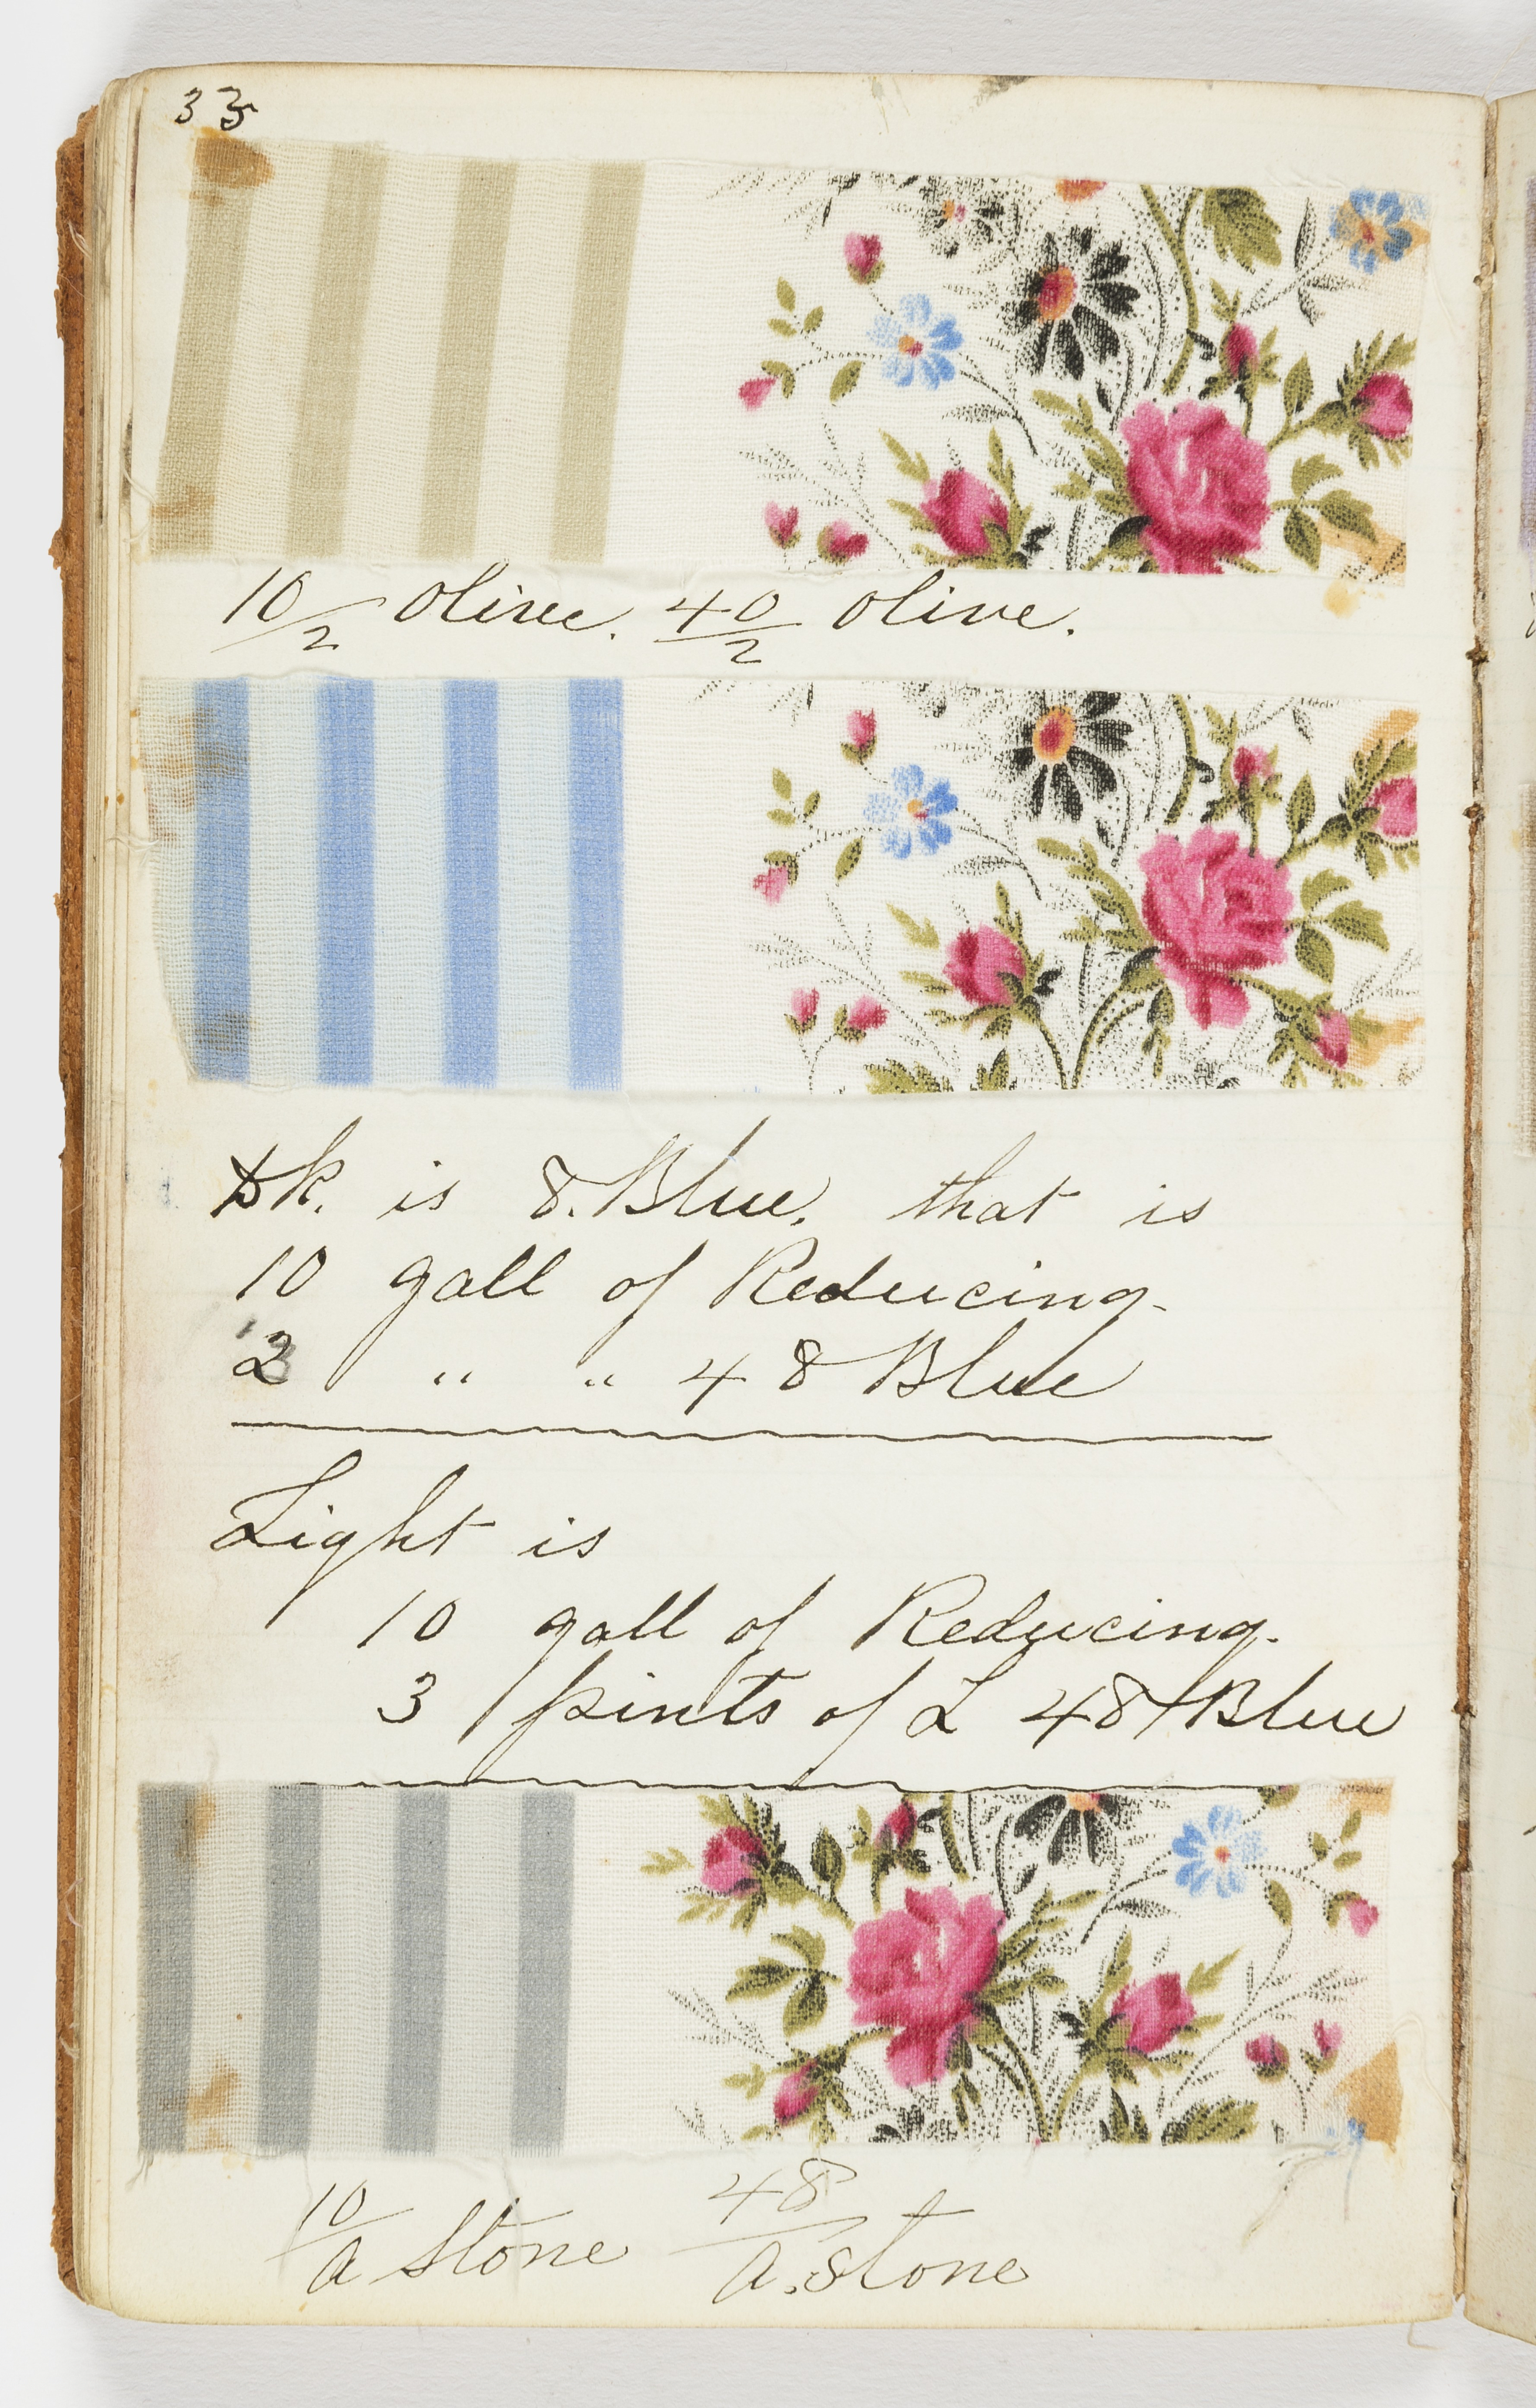 33
10/2 Olive. 40/2 Olive.
Dk. is 8. Blue. that is
10 gall of Reducing.
2 " " 48 Blue
Light is
10 gall of Reducing.
3 pints of L 48/Blue
10/a Stone 48/a. Stone